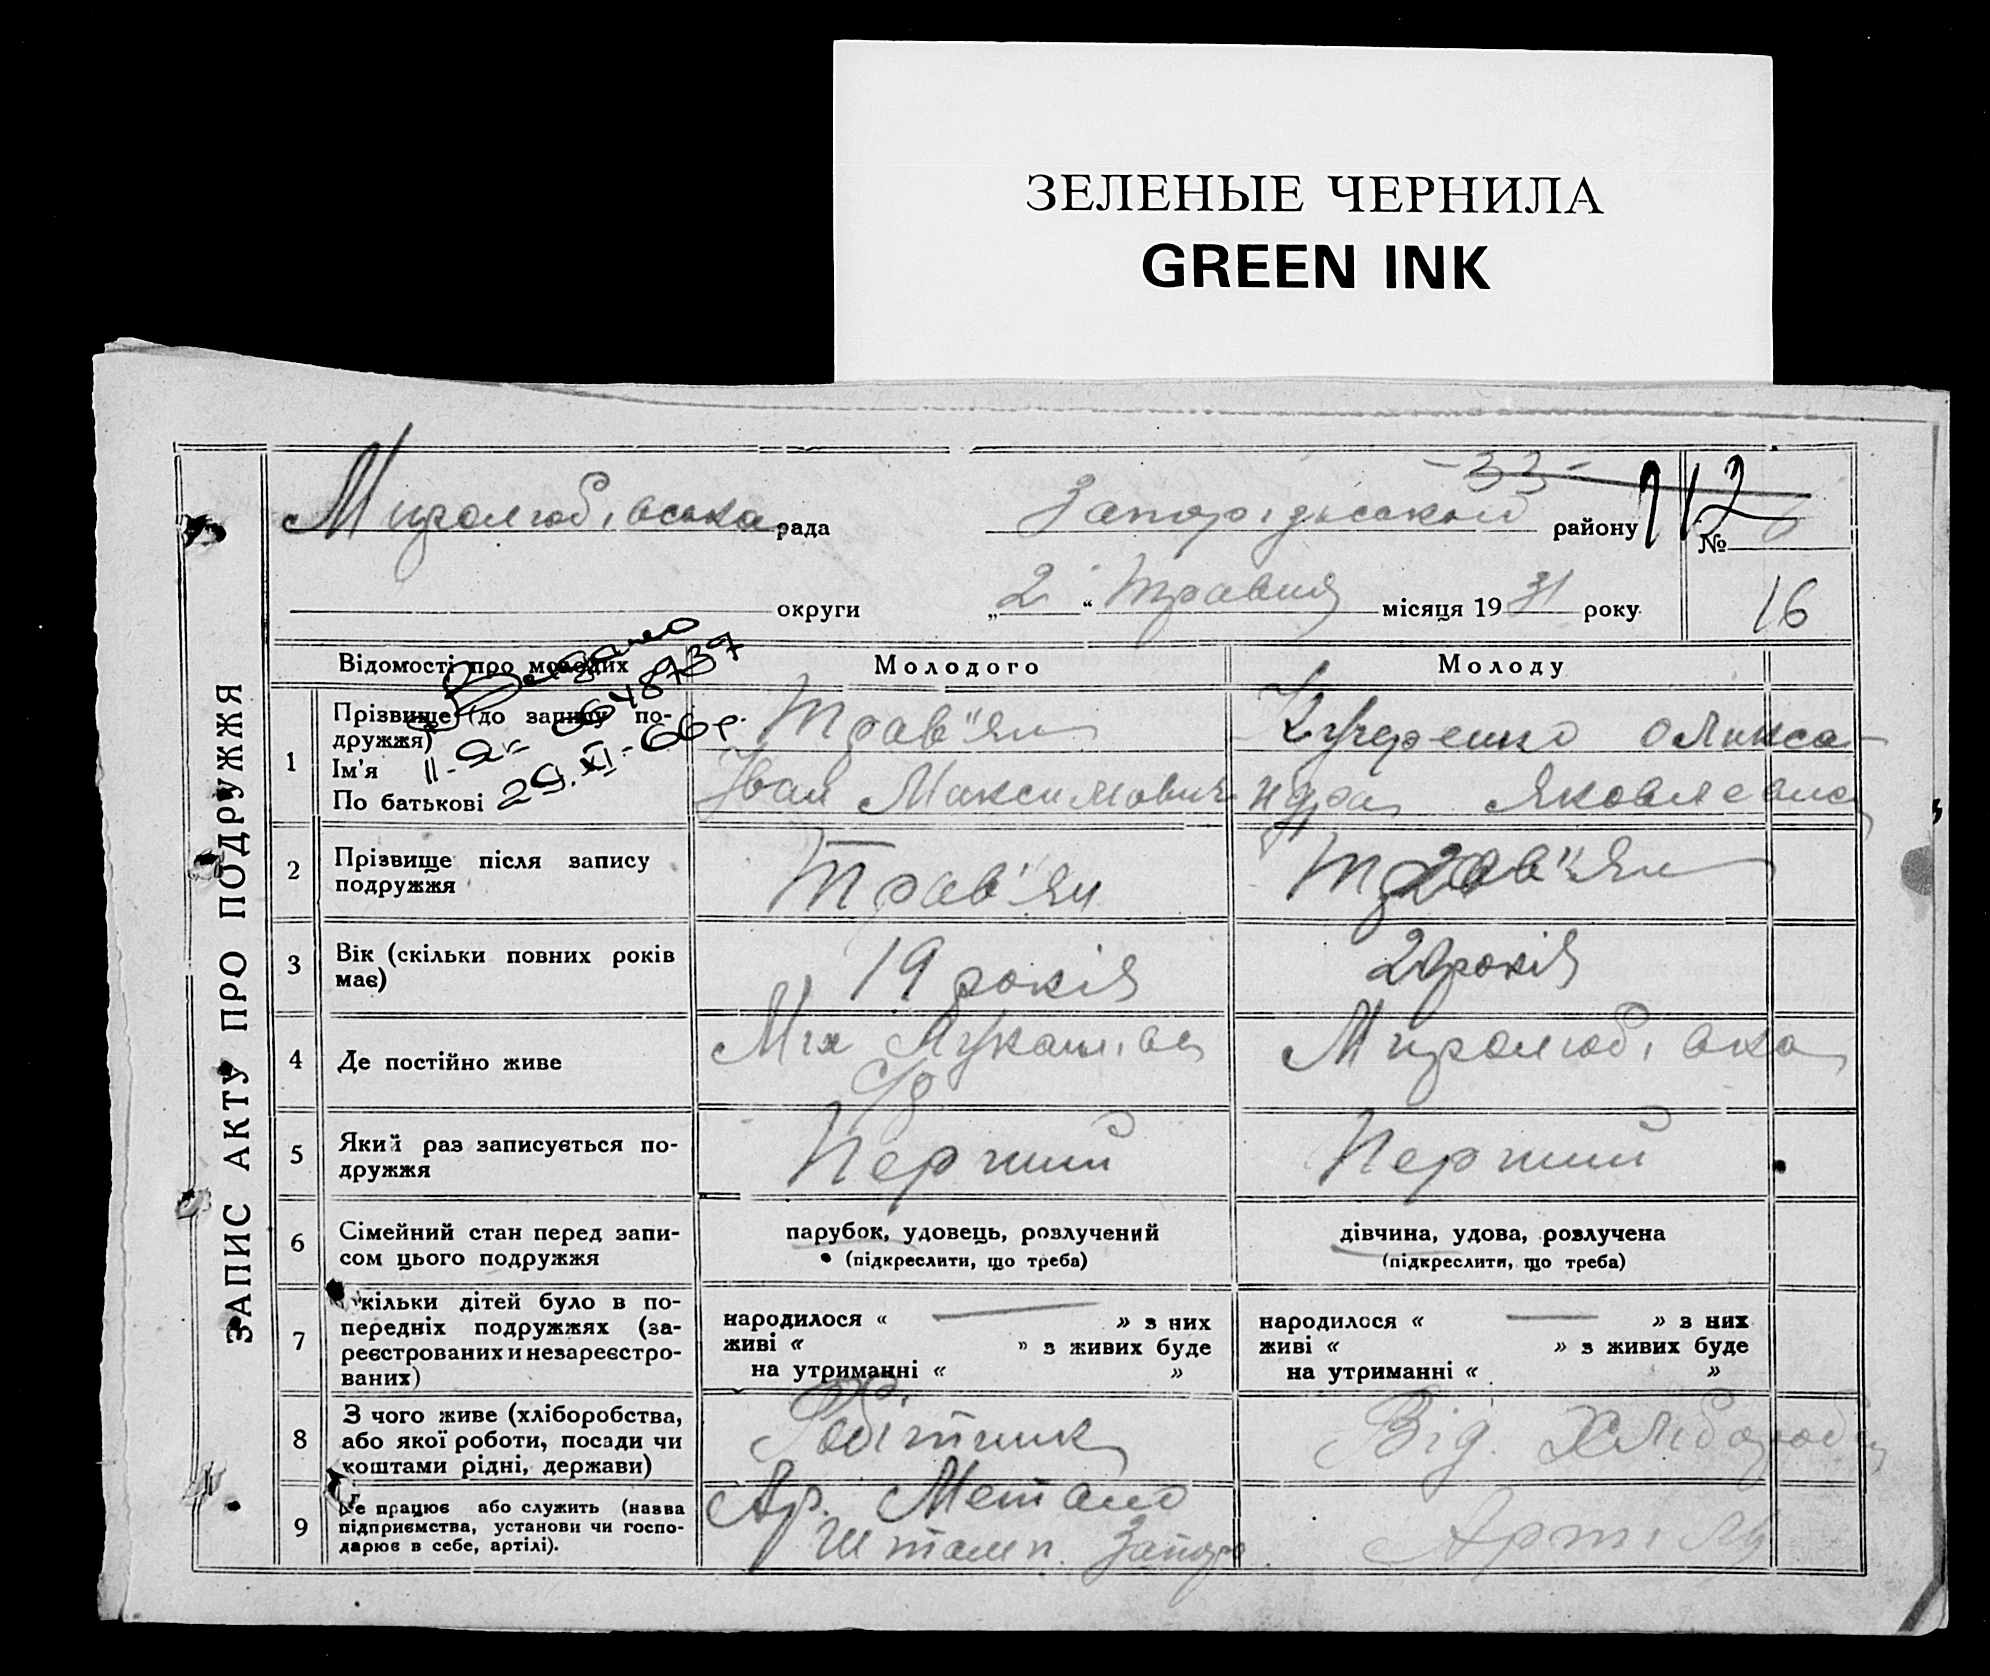 ЗЕЛЕНЫЕ ЧЕРНИЛА
GREEN INK
ЗАПИС АКТУ ПРО ПОДРУЖЖЯ
-33-
Миролюбівська рада Запорідьской району №
112
округи „2“ Травня місяця 1931 року
16
Відомості про молодих Молодого Молоду
Видано
II-ЯГ 648737
29.XI-66р.
1 Прізвище (до запису подружжя) Ім'я По батькові
Трав"ян
Іван Максимович
Кучеренко олекса-
ндра Яковлевна
2 Прізвище після запису подружжя Трав'ян Трав"ян
3 Вік (скільки повних років має) 19 років 20 років
4 Де постійно живе Лукашівс с/р Миролюбівка
5 Який раз записується подружжя Перший Перший
6 Сімейний стан перед записом цього подружжя
парубок, удовець, розлучений
(підкреслити, що треба)
дівчина, удова, розлучена
(підкреслити, що треба)
7 Скільки дітей було в попередніх подружжях (зареєстрованих и незареєстрованих)
народилося « — » з них
живі « » з живих буде
на утриманні « »
народилося « — » з них
живі « » з живих буде
на утриманні « »
8 З чого живе (хліборобства, або якої роботи, посади чи коштами рідні, держави) Робітник Від. Хлібороб
9 Де працює або служить (назва підприємства, установи чи господарює в себе, артілі).
Ар. Метало
Штамп. Запор.
Артіль